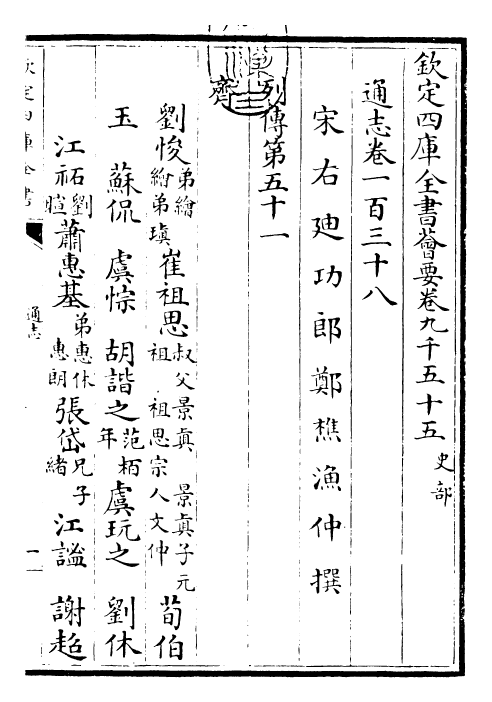 欽定四庫全書薈要卷九千五十五 史部
通志卷一百三十八
宋右廸功郎鄭樵漁仲撰
列傳第五十一
齊
劉悛弟繪 繪弟瑱 崔祖思叔父景真 景真子元祖 祖思宗人文仲 荀伯
玉 蘇侃 虞悰 胡諧之范栢年 虞玩之 劉休
江祏劉暄 蕭惠基弟惠休 惠朗 張岱兄子緒 江謐 謝超
欽定四庫全書
通志
一